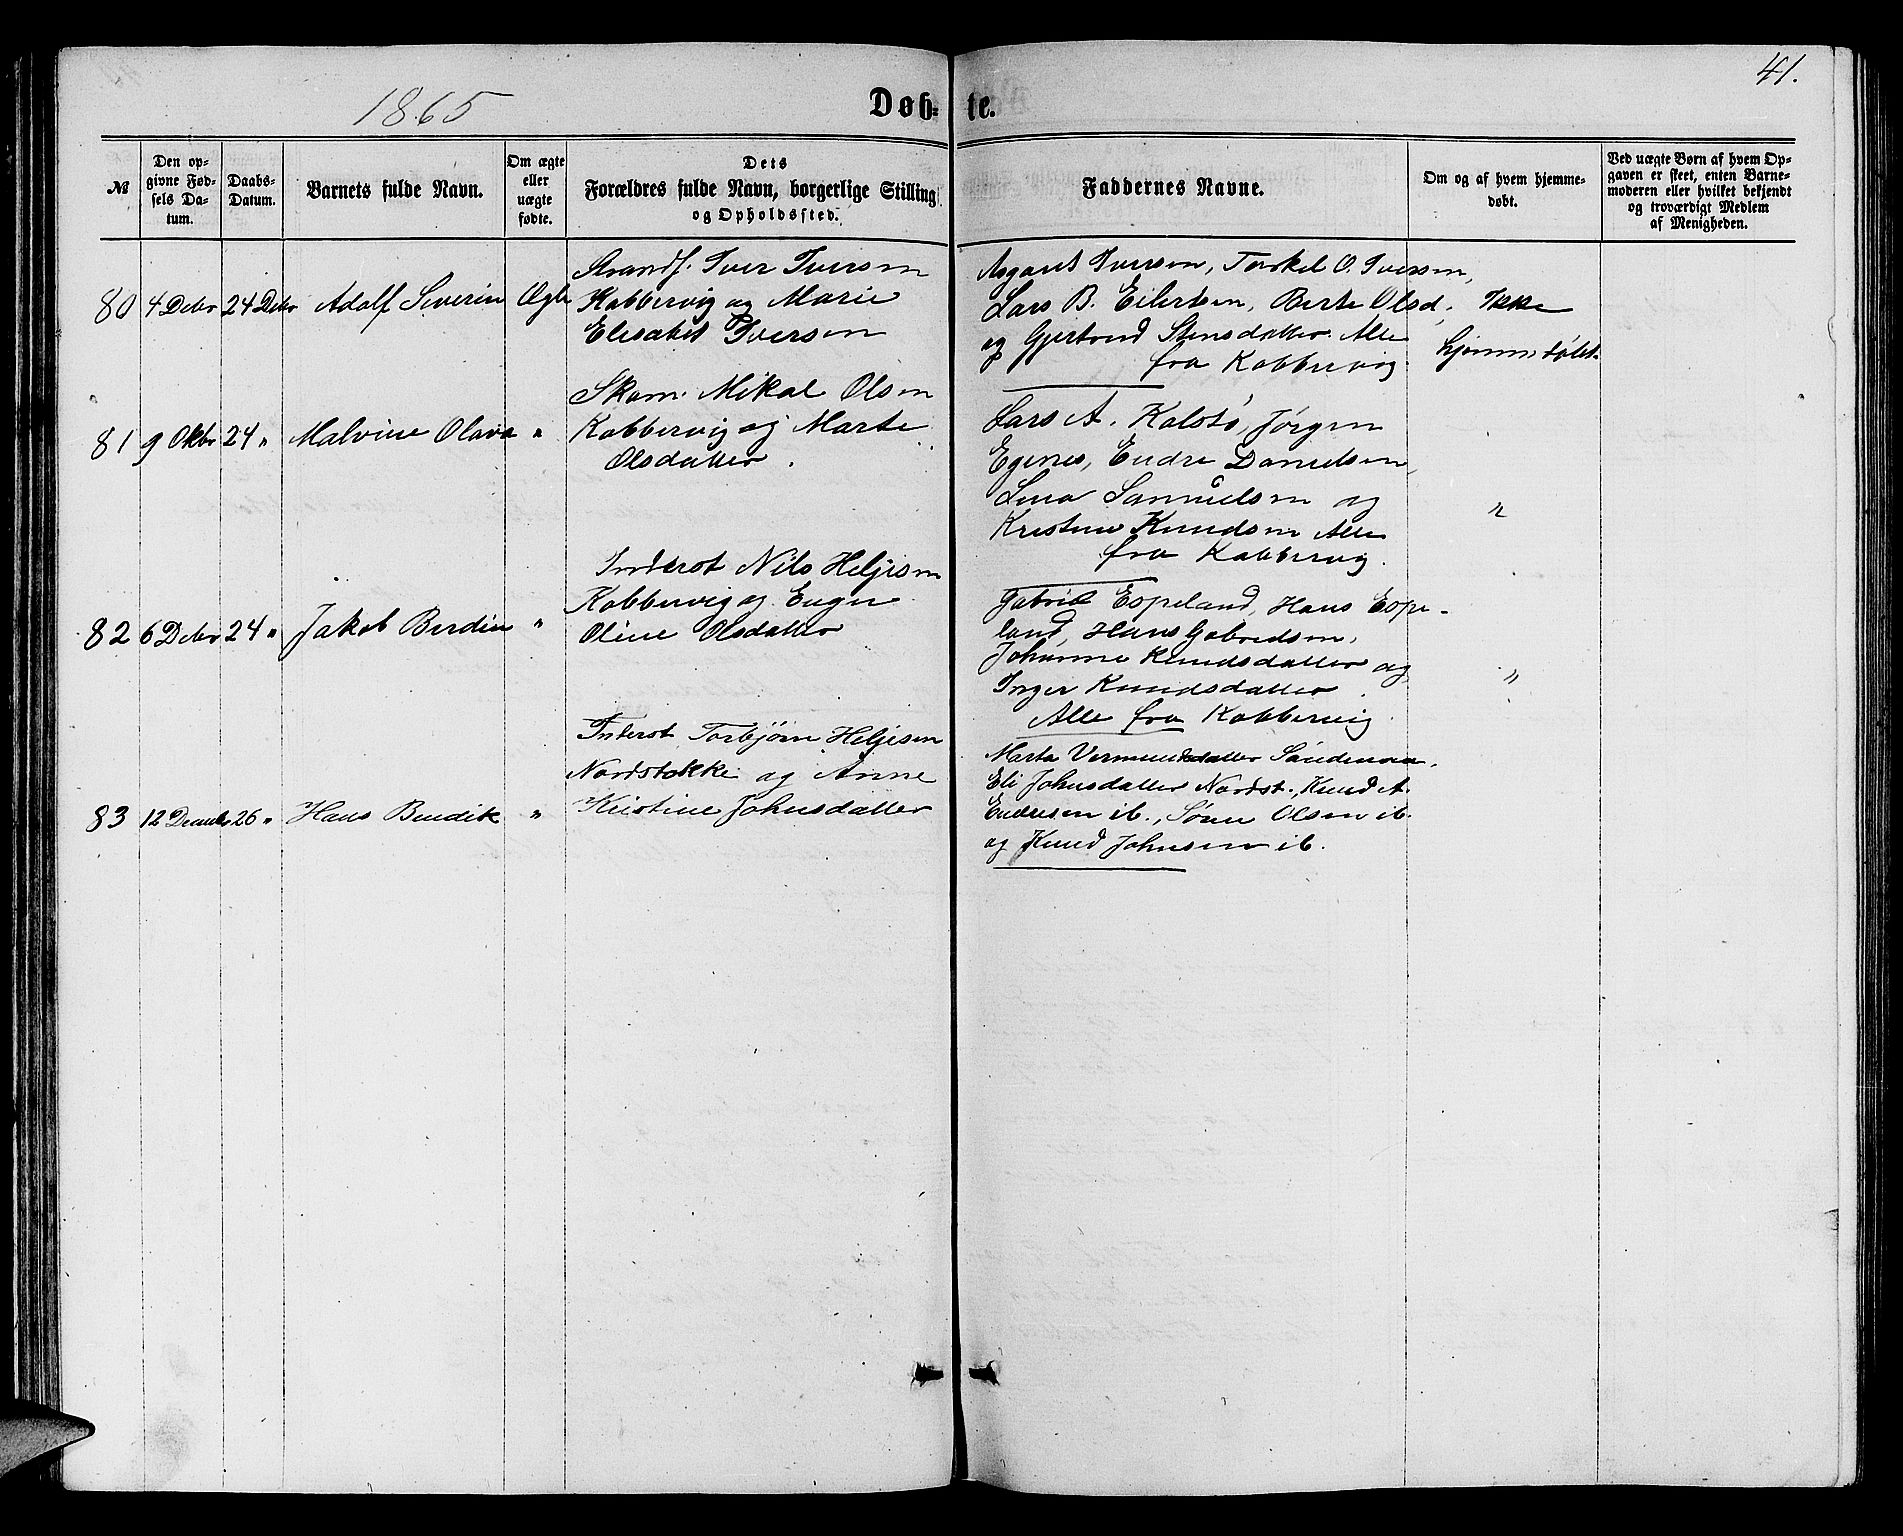 41.
1865
Døb- te.
№
Den op-
givne Fød-
sels Da-
tum.
Daabs-
Datum.
Barnets fulde Navn.
Om ægte
eller
uægte
fødte.
Dets
Forældres fulde Navn, borgerlige Stilling
og Opholdssted.
Faddernes Navne.
Om og af hvem hjemme-
døbt.
Ved uægte Børn af hvem Op-
gaven er skeet, enten Barne-
moderen eller hvilket bekjendt
og troværdigt Medlem
af Menigheden.
80 4 Debr 24 Debr Adolf Severin Ægte
Strandf. Iver Iversen
Kobbervig og Marie
Elisabet Iversen
Asgaut Iversen, Torkel O. Iversen,
Lars B. Eilertsen, Berte Olsd.
og Gjertrud Stensdatter. Alle
fra Kobbervig
Ikke
hjemmedøbt.
81 9 Oktbr 24 " Malvine Olava "
Skom. Mikal Olsen
Kobbervig og Marte
Olsdatter.
Lars A. Kalstø, Jørgen
Egenes, Endre Danielsen,
Lena Samuelsen og
Kristine Knudsen Alle
fra Kobbervig.
"
82 6 Debr 24 " Jakob Berdin "
Inderst Nils Heljesen
Kobbervig og Inger
Oline Olsdatter
Gabriel Espeland, Hans Espe-
land, Hans Gabrielsen,
Johanne Knudsdatter og
Inger Knudsdatter.
Alle fra Kobbervig
"
83 12 Decembr 26 " Hans Bendik "
Inderst Torbjørn Heljesen
Nordstokke og Anne
Kristine Johnsdatter
Marta Vermundsdatter
Eli Johnsdatter Nordst., Knud A.
Endresen ib., Søren Olsen ib.
og Knud Johnsen ib.